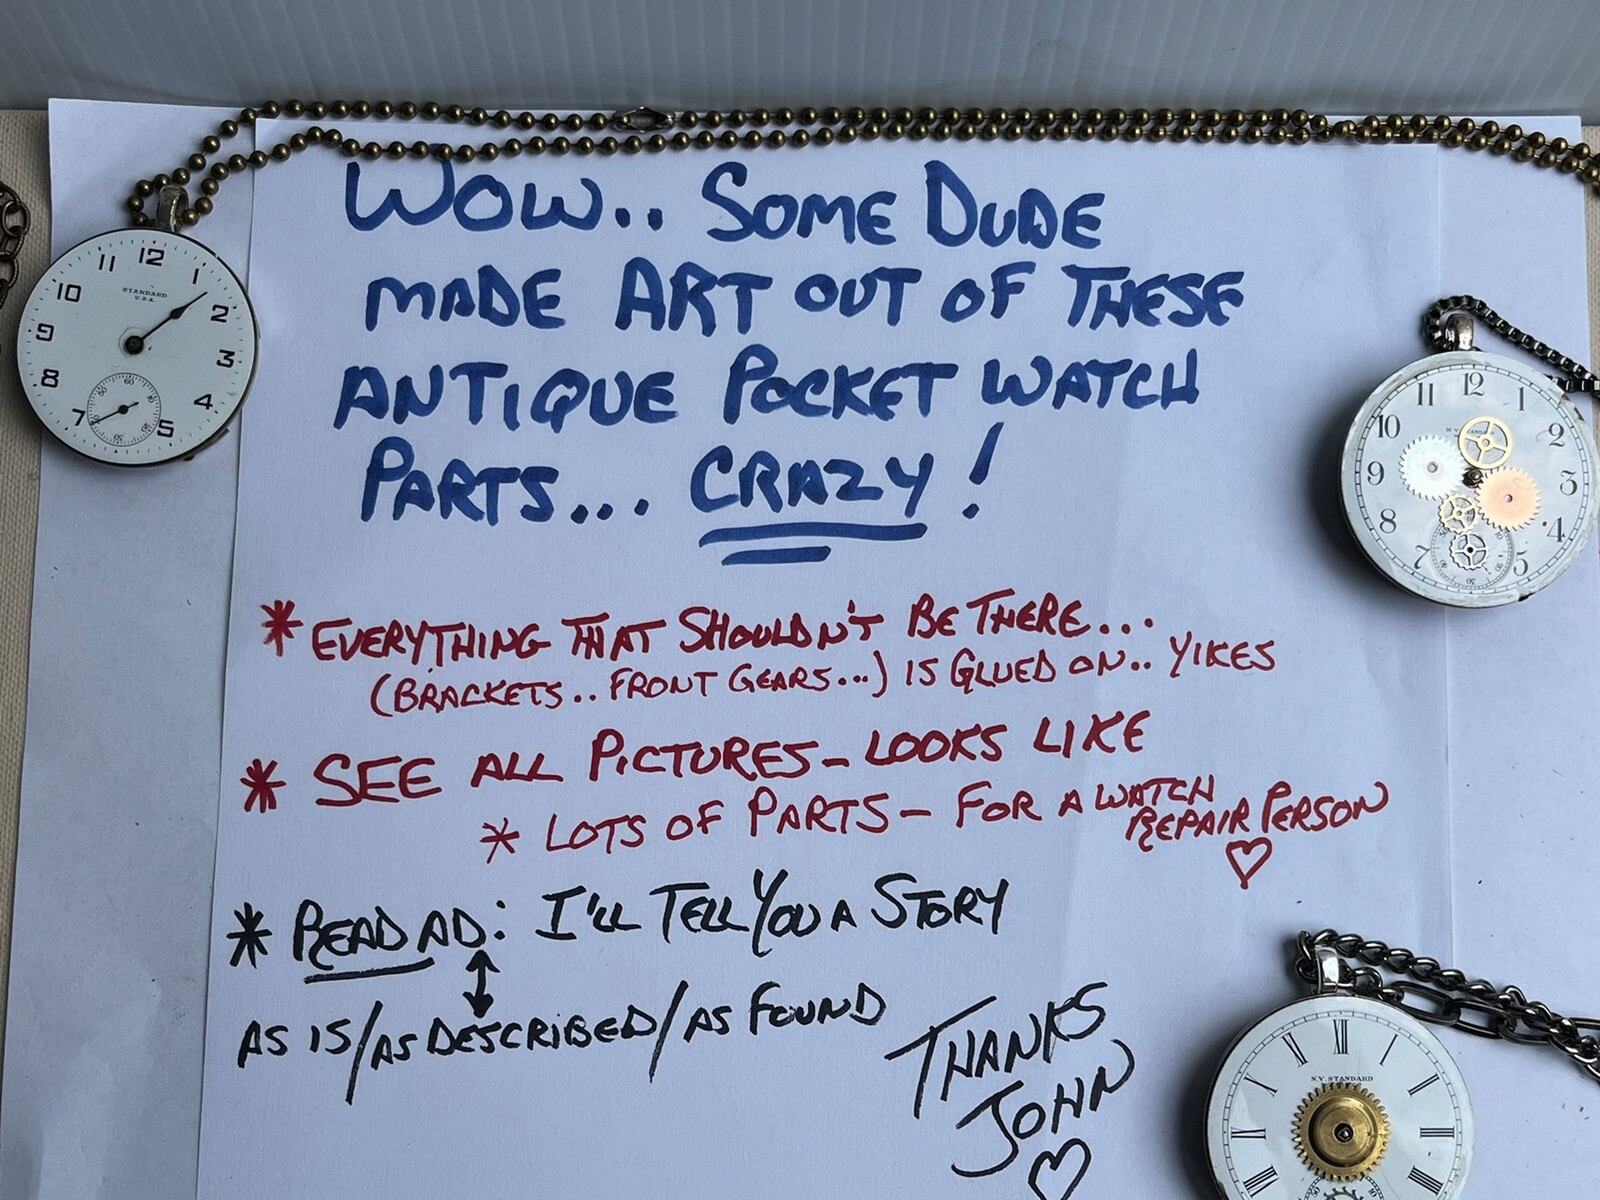 WOW.. SOME DUDE
MADE ART OUT OF THESE
ANTIQUE POCKET WATCH
PARTS... CRAZY!
* EVERYTHING THAT SHOULDN'T BE THERE...
(BRACKETS.. FRONT GEARS...) IS GLUED ON.. YIKES
* SEE ALL PICTURES - LOOKS LIKE
* LOTS OF PARTS - FOR A WATCH
REPAIR PERSON
* READ AD: I'LL TELL YOU A STORY
AS IS/AS DESCRIBED/AS FOUND
THANKS
JOHN
11 12 1
10 2
9 3
8 4
7 5
STANDARD
U.S.A.
60
11 12 1
10 2
9 3
8 4
7 5
XII
N.Y. STANDARD